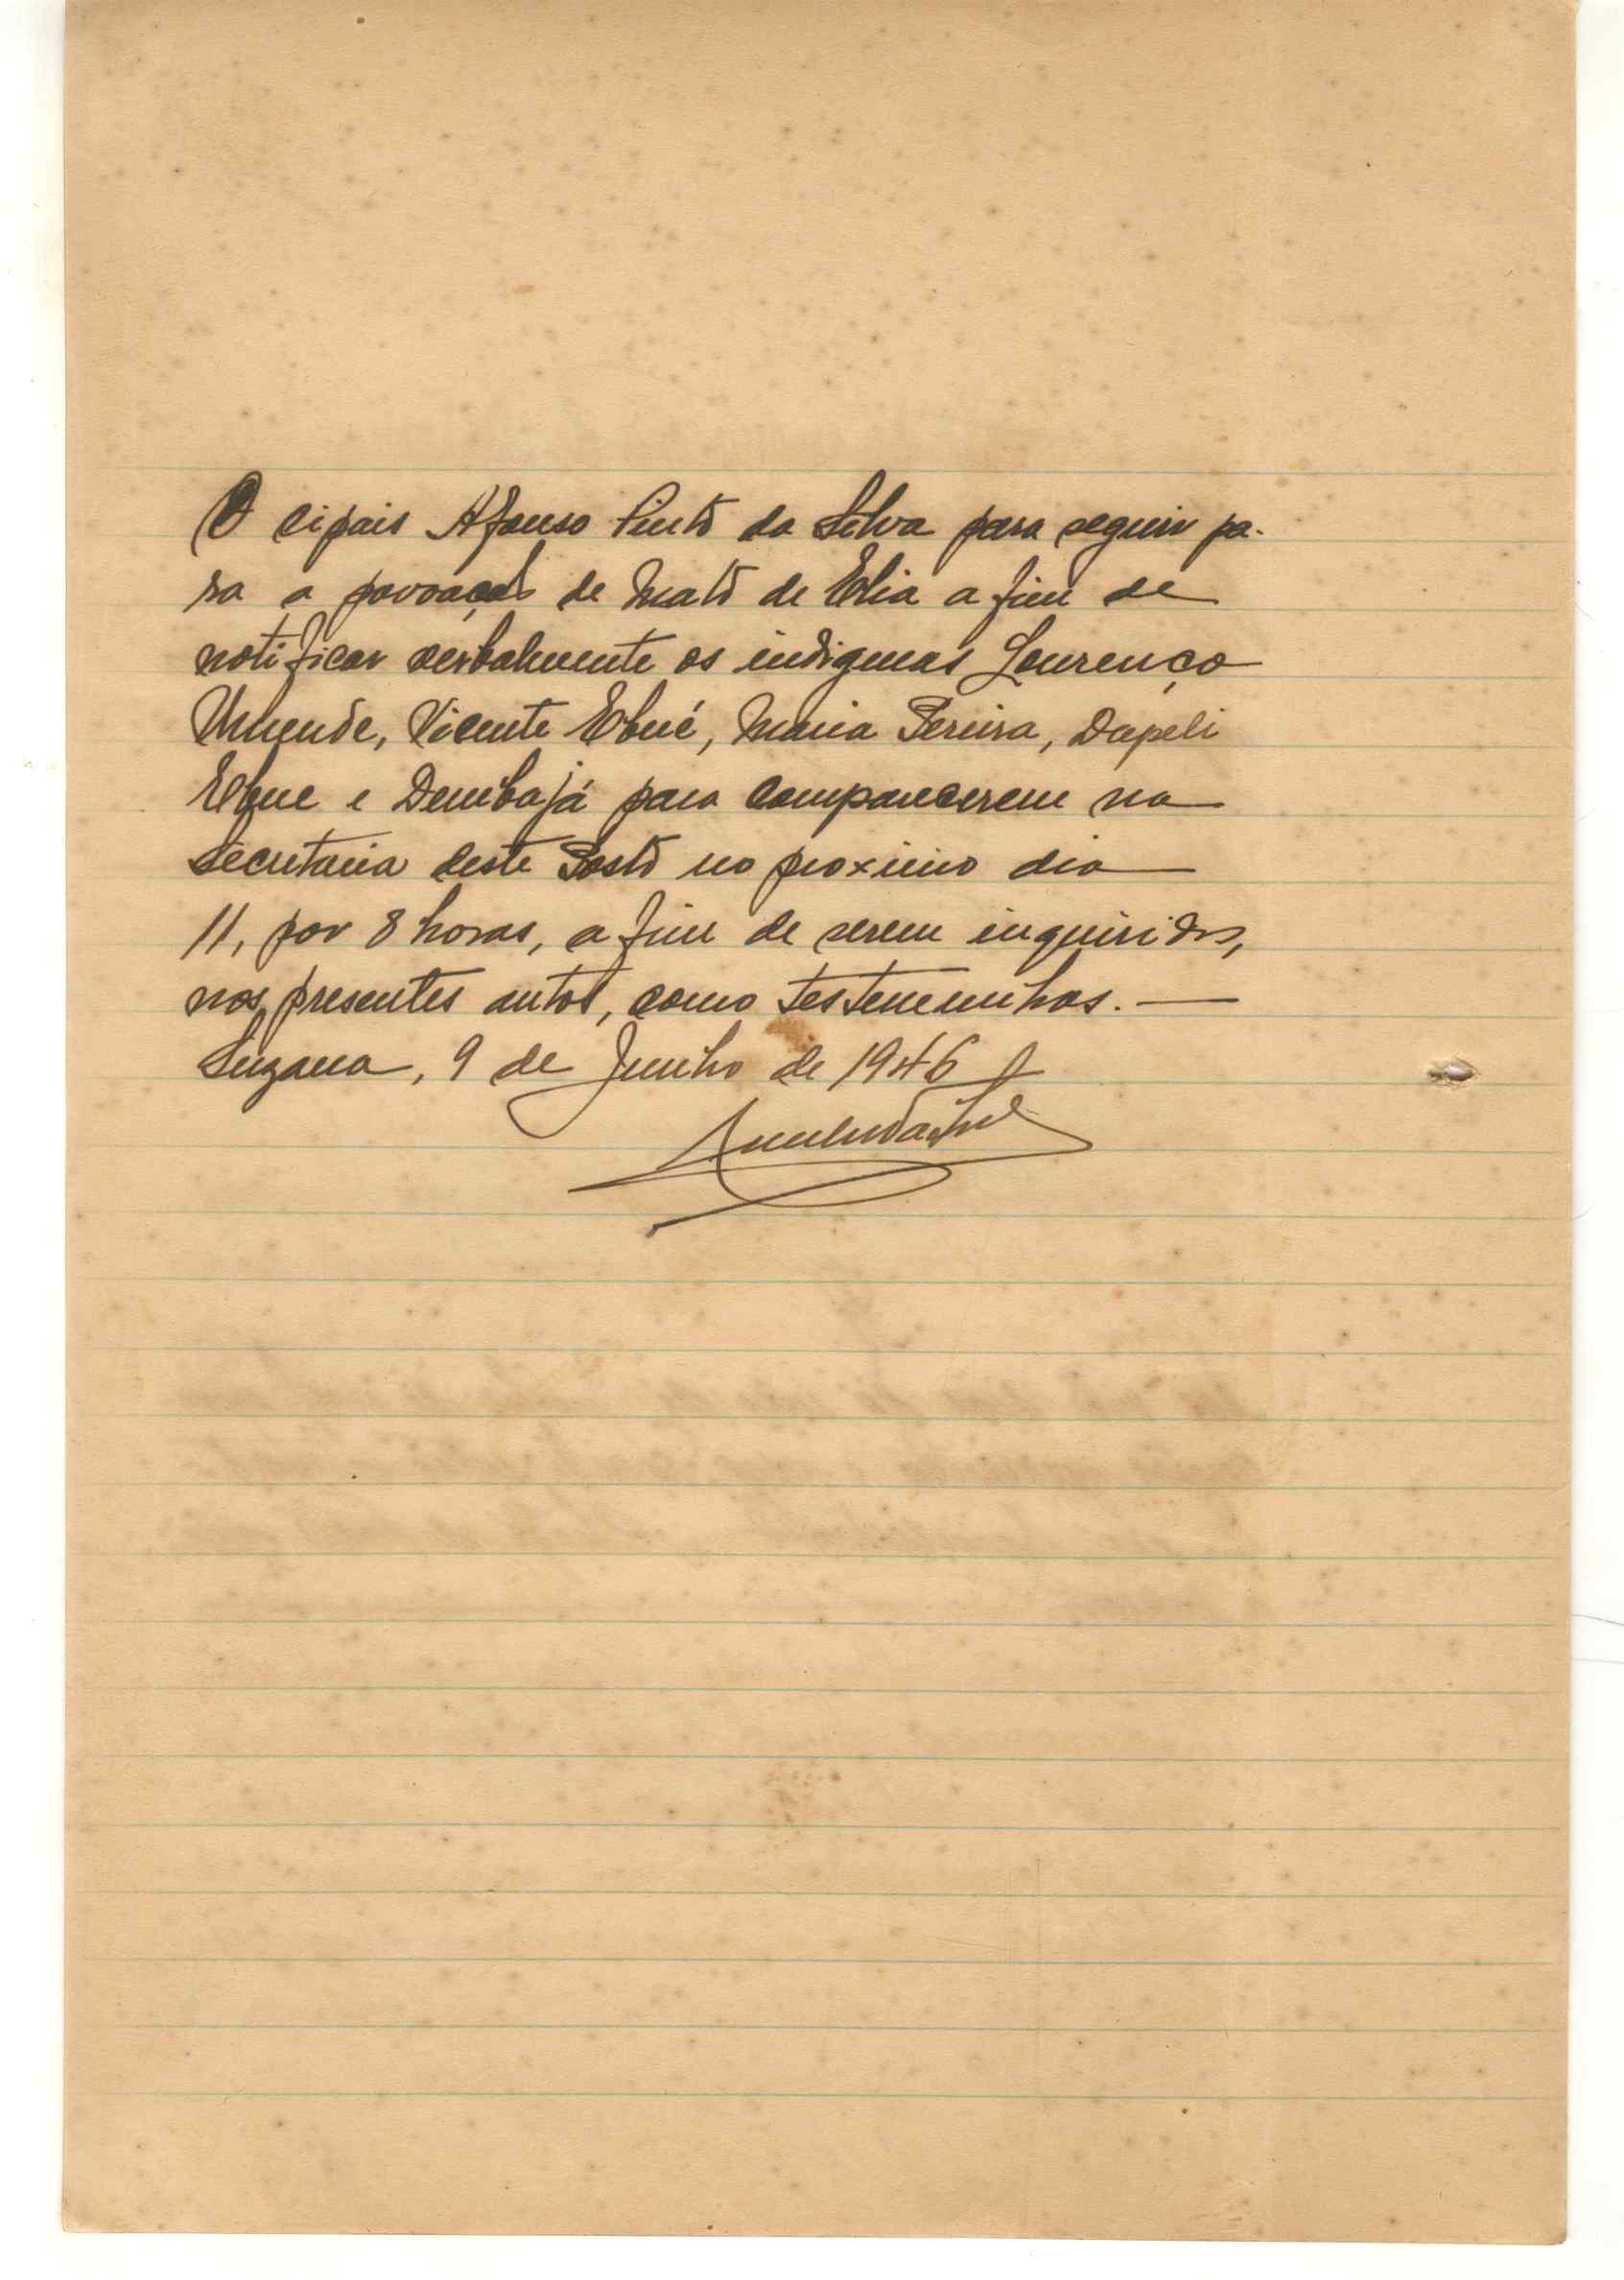 O cipais Afonso Pinto da Silva para seguir pa-
ra a povoação de Mato de Elia a fim de
notificar verbalmente os indigenas Lourenço
Umende, Vicente Ebué, Maria Pereira, Dapeli
Ebue e Dembajá para comparecerem na
Secretaria deste Posto no proximo dia
11, por 8 horas, a fim de serem inquiridos,
nos presentes autos, como testemunhas. —
Suzana, 9 de Junho de 1946